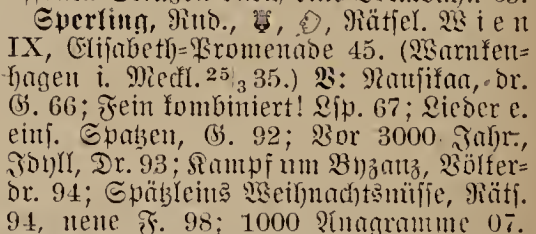 Sperling, Rud., Rätsel. Wien
IX, Elisabeth=Promenade 45. (Warnken=
hagen i. Meckl. 25/3 35.) V: Nausikaa, dr.
G. 66; Fein kombiniert! Lsp. 67; Lieder e.
eins. Spatzen, G. 92; Vor 3000 Jahr.,
Idyll, Dr. 93; Kampf um Byzanz, Völker=
dr. 94; Spätzleins Weihnachtsnüsse, Räts.
94, neue F. 98; 1000 Anagramme 07.